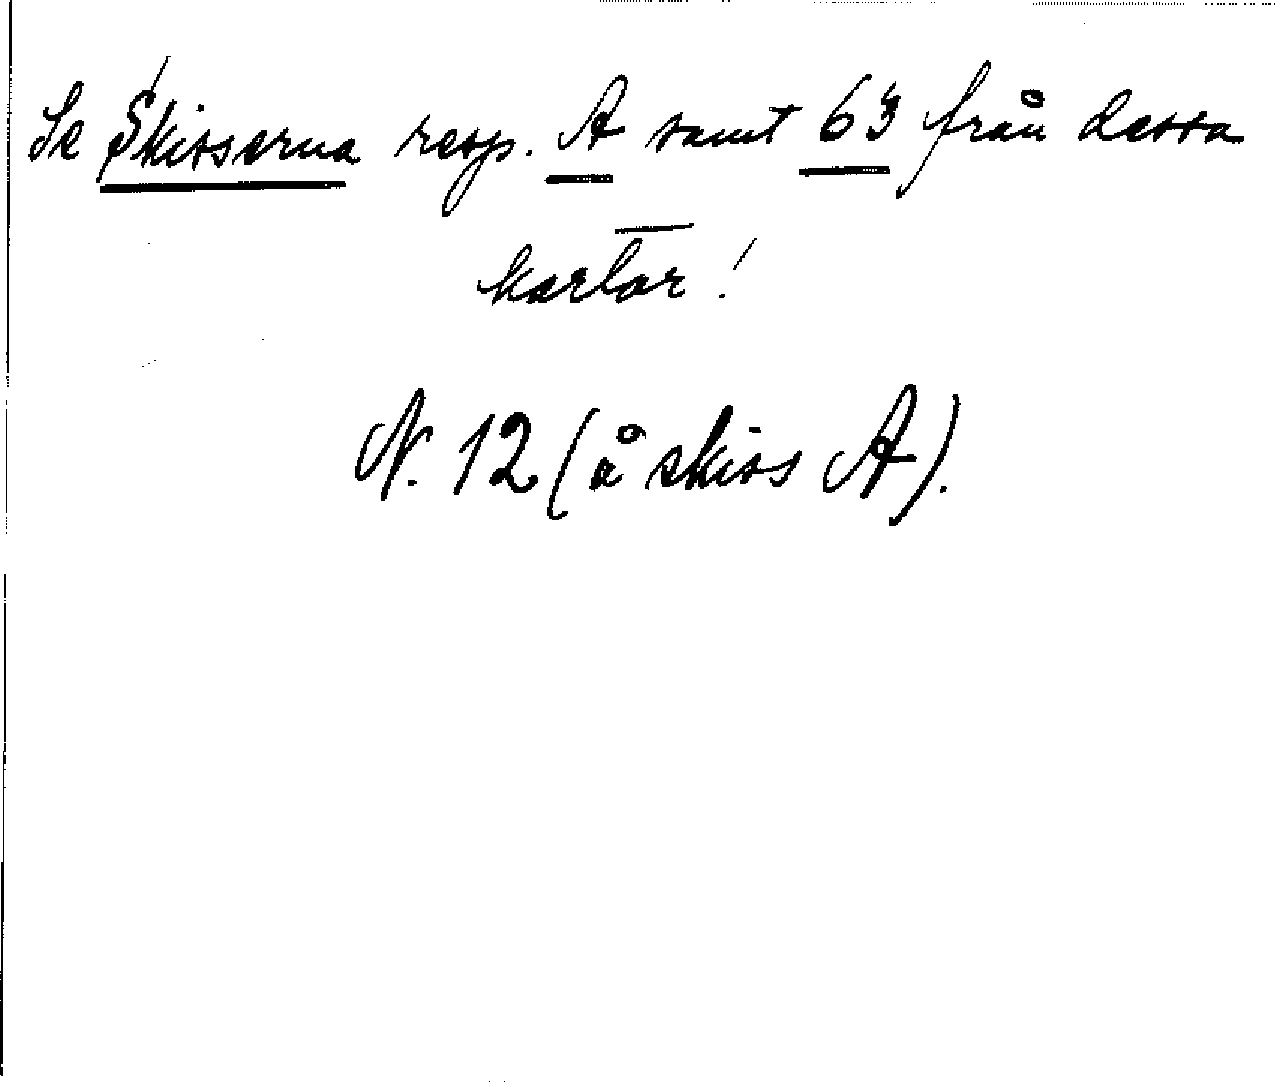 Se Skisserna resp. A samt 63 från dessa
kartor!
N. 12 (å skiss A).